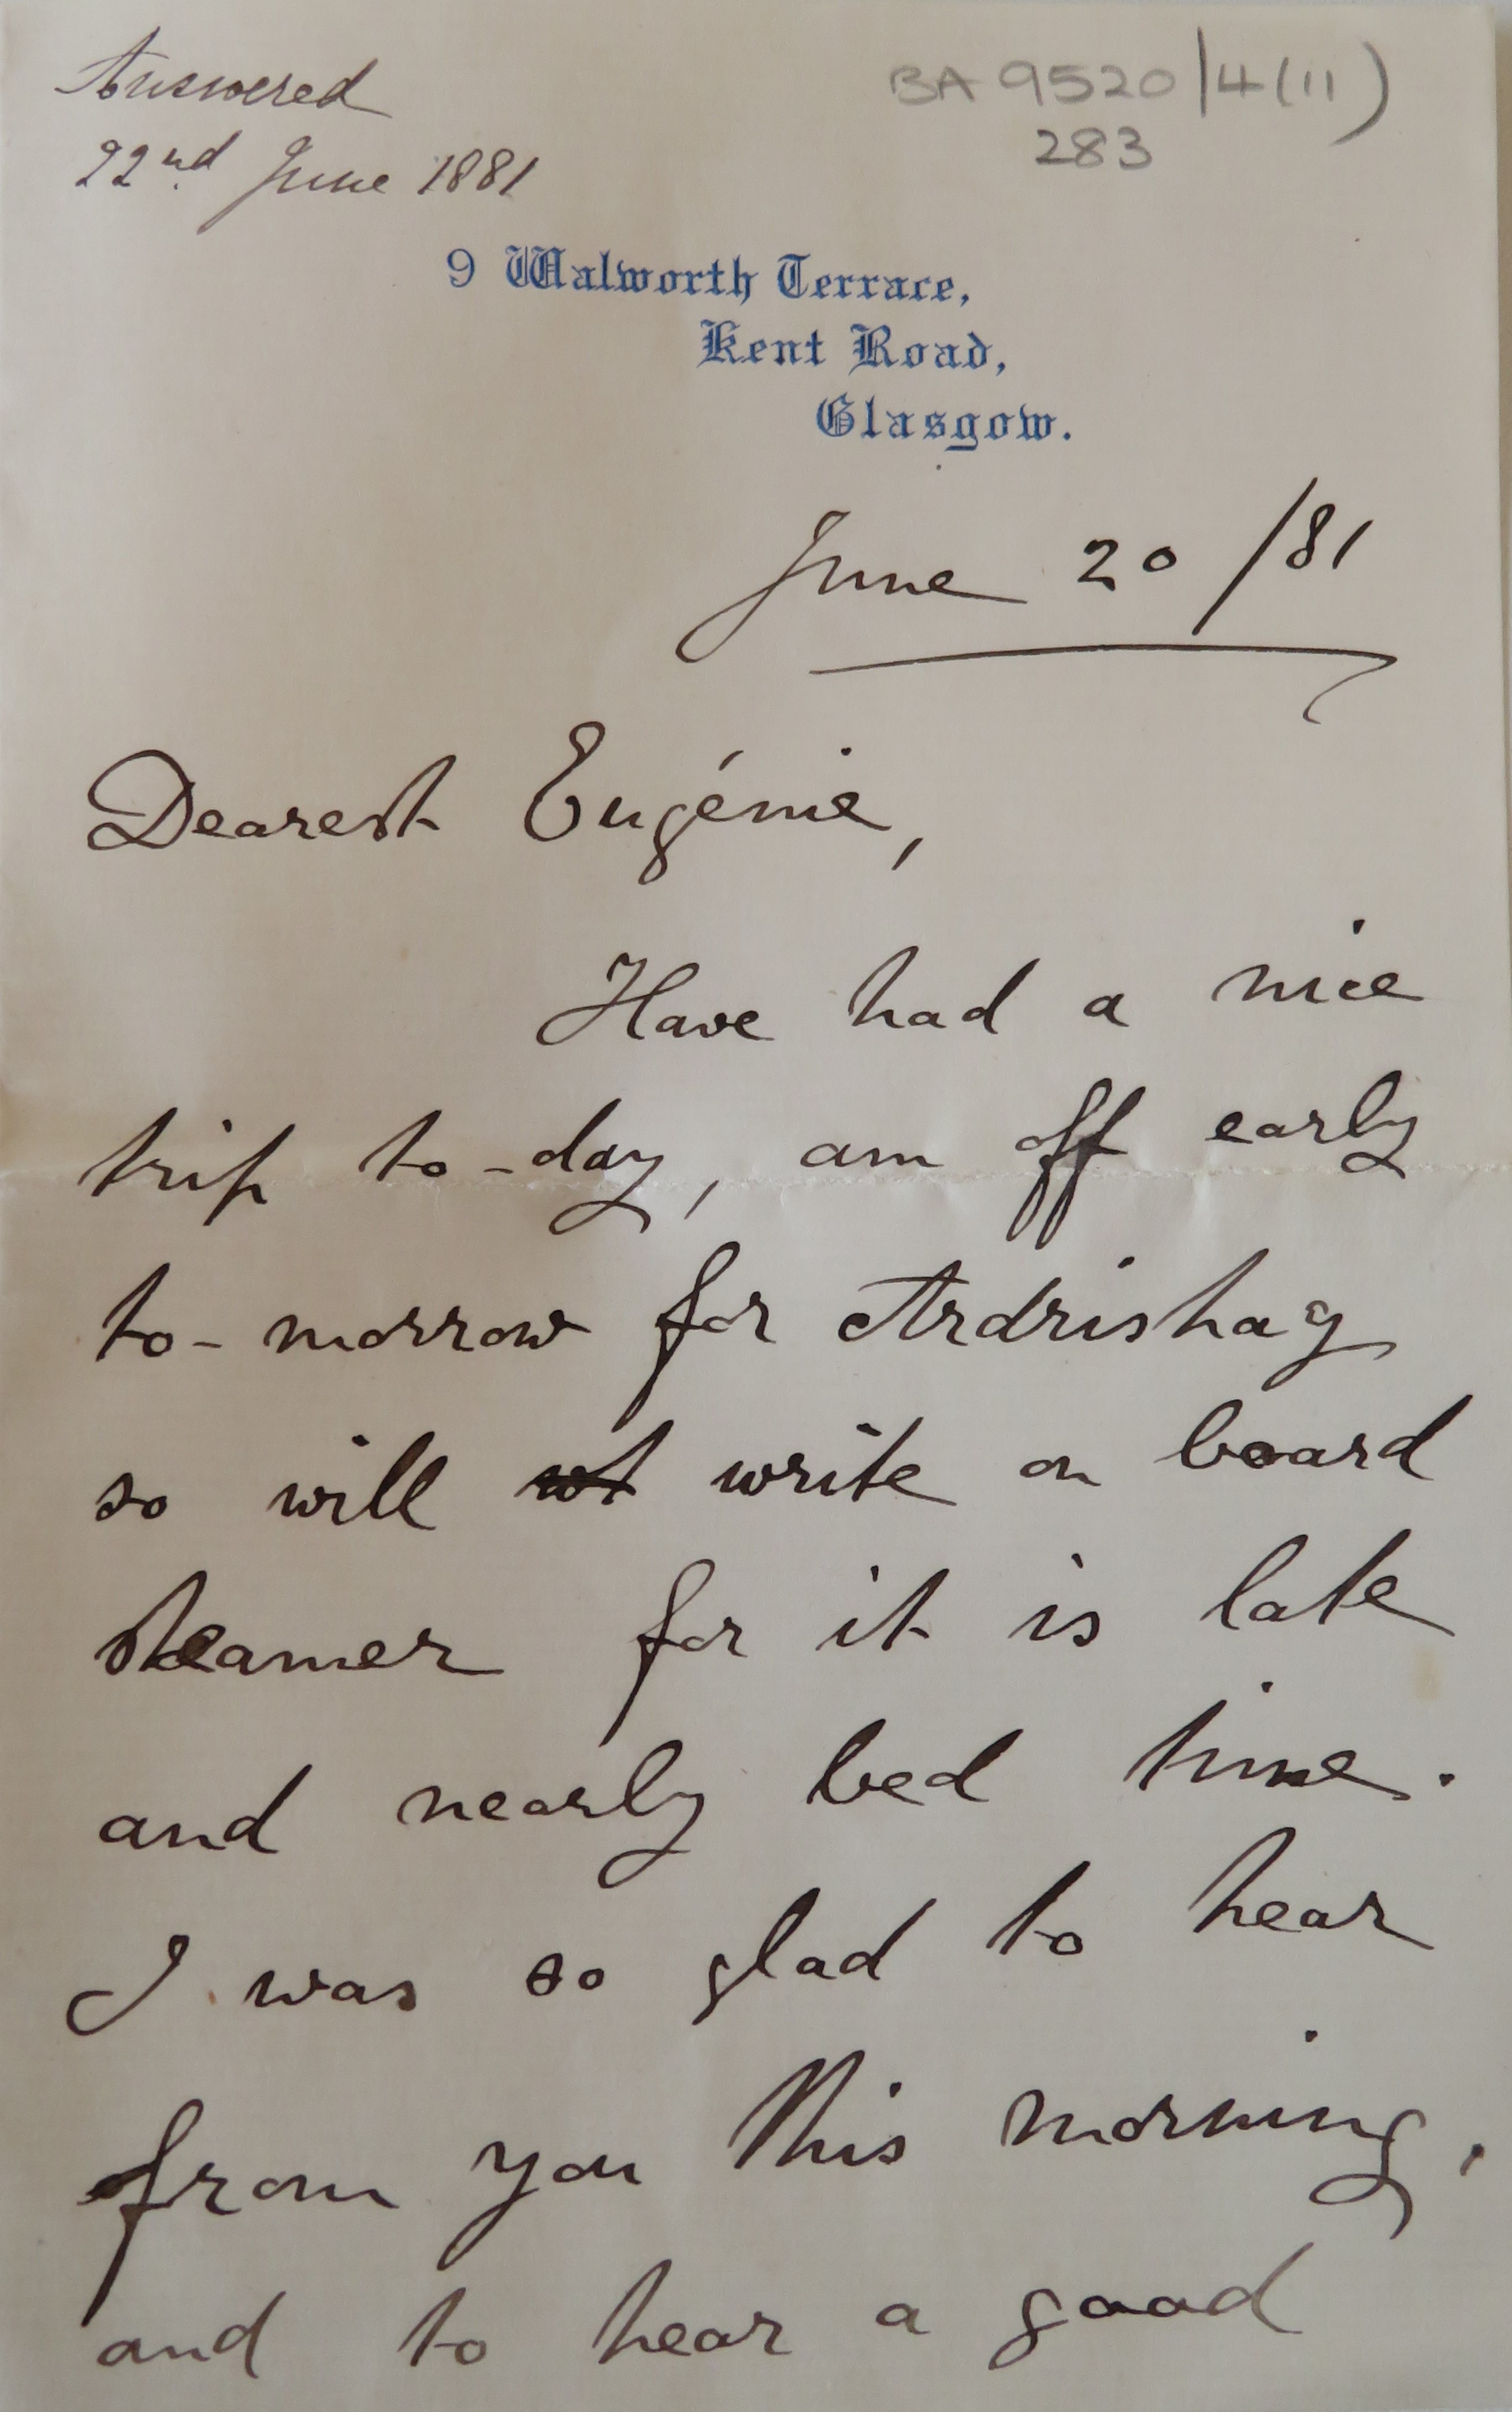 Answered
22nd June 1881
BA 9520/4(11)
283
9 Walworth Terrace,
Kent Road,
Glasgow.
June 20/81
Dearest Eugénie,
Have had a nice
trip to-day, am off early
to-morrow for Ardrishag
so will write on board
steamer for it is late
and nearly bed time.
I was so glad to hear
from you this morning,
and to hear a good